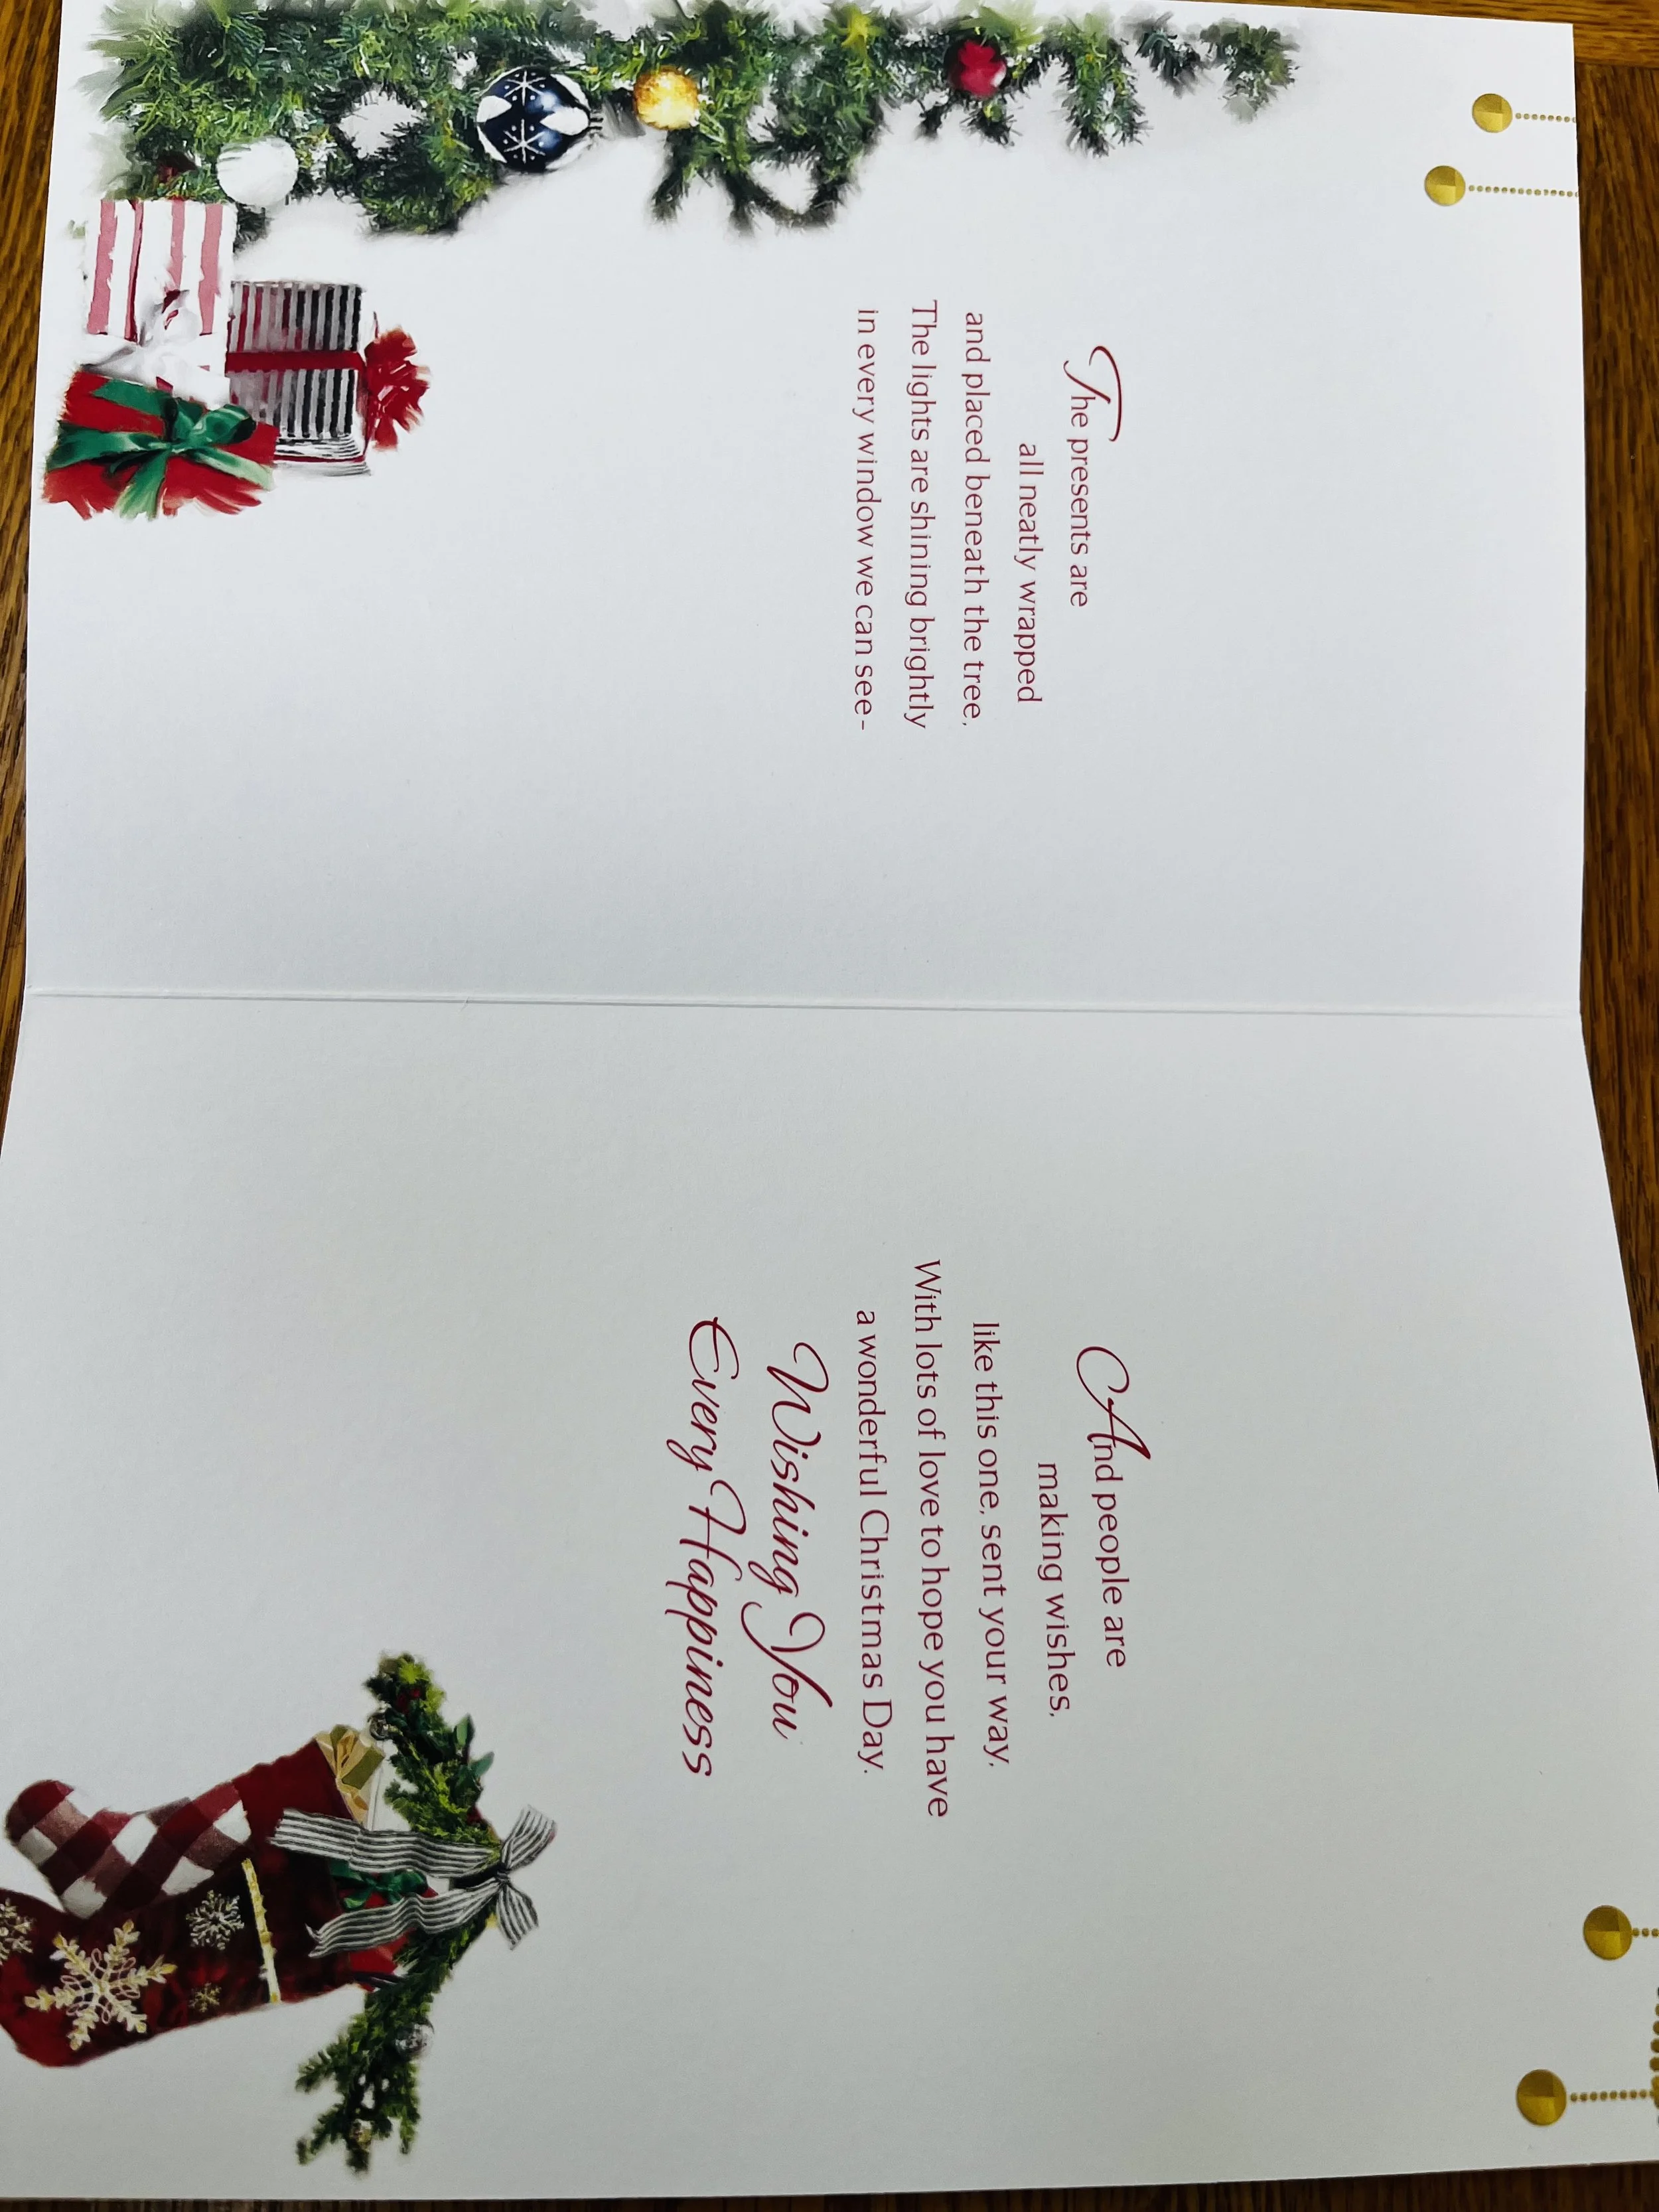 The presents are
all neatly wrapped
and placed beneath the tree,
The lights are shining brightly
in every window we can see-
And people are
making wishes,
like this one, sent your way,
With lots of love to hope you have
a wonderful Christmas Day.
Wishing You
Every Happiness